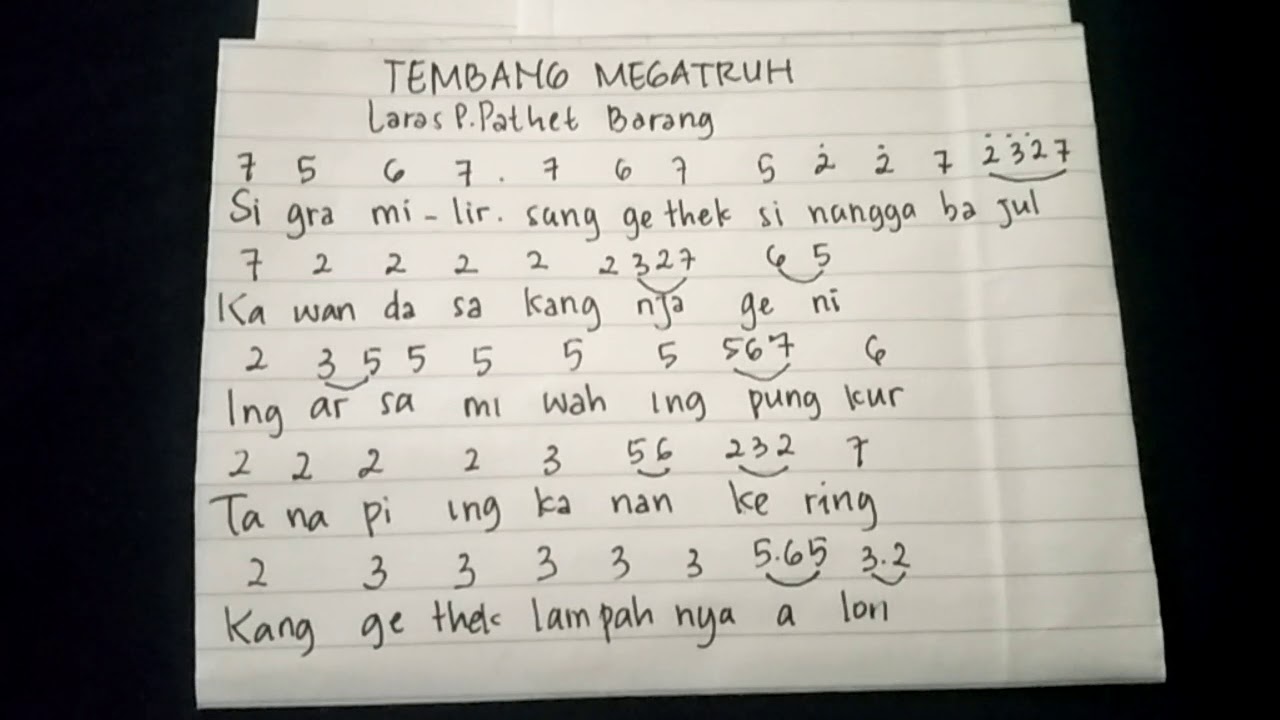 TEMBANG MEGATRUH
Laras P. Pathet Barang
7 5 6 7 . 7 6 7 5 2̇ 2̇ 7 2̇3̇2̇7
Si gra mi - lir. sang ge thek si nangga ba jul
7 2 2 2 2 2 327 6 5
Ka wan da sa kang nja ge ni
2 3 5 5 5 5 5 567 6
Ing ar sa mi wah ing pung kur
2 2 2 2 3 56 232 7
Ta na pi ing ka nan ke ring
2 3 3 3 3 3 5.65 3.2
Kang ge thek lam pah nya a lon